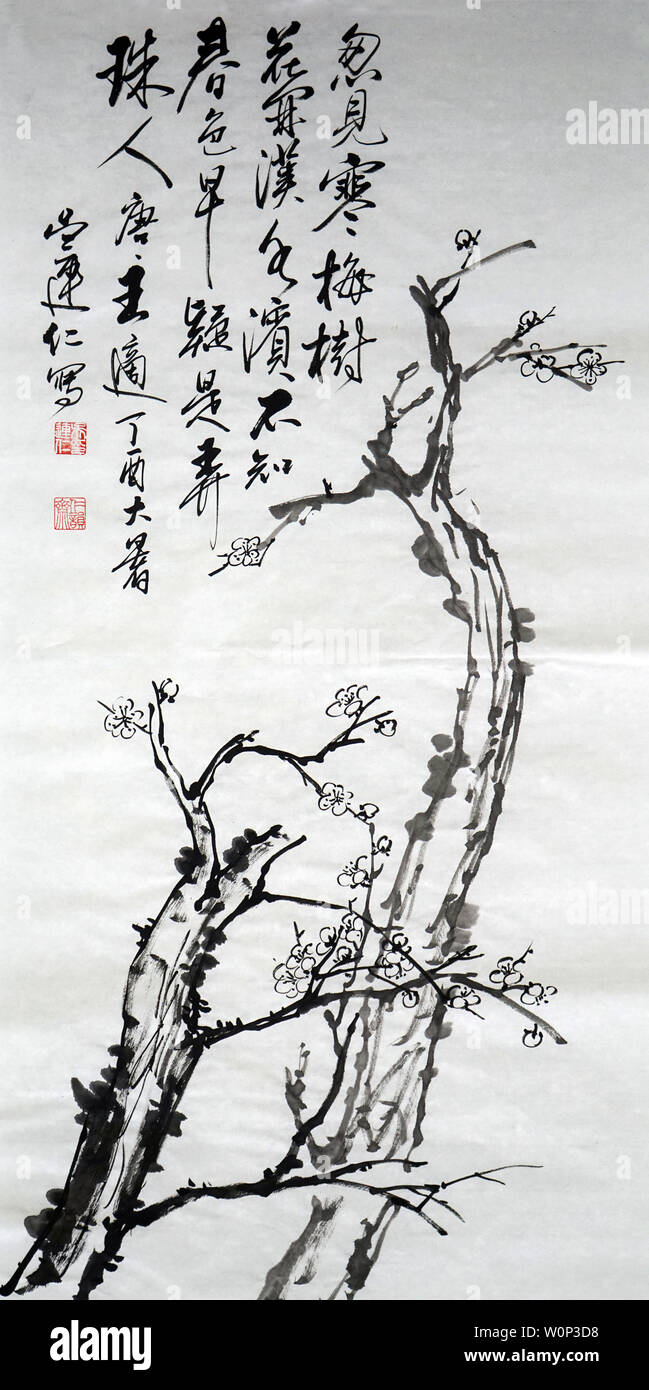 忽見寒梅樹
花開漢水濱不知
春色早疑是弄
珠人唐王適丁酉大暑
仁寫
alamy
alamy
alamy
alamy
Image ID: W0P3D8
www.alamy.com